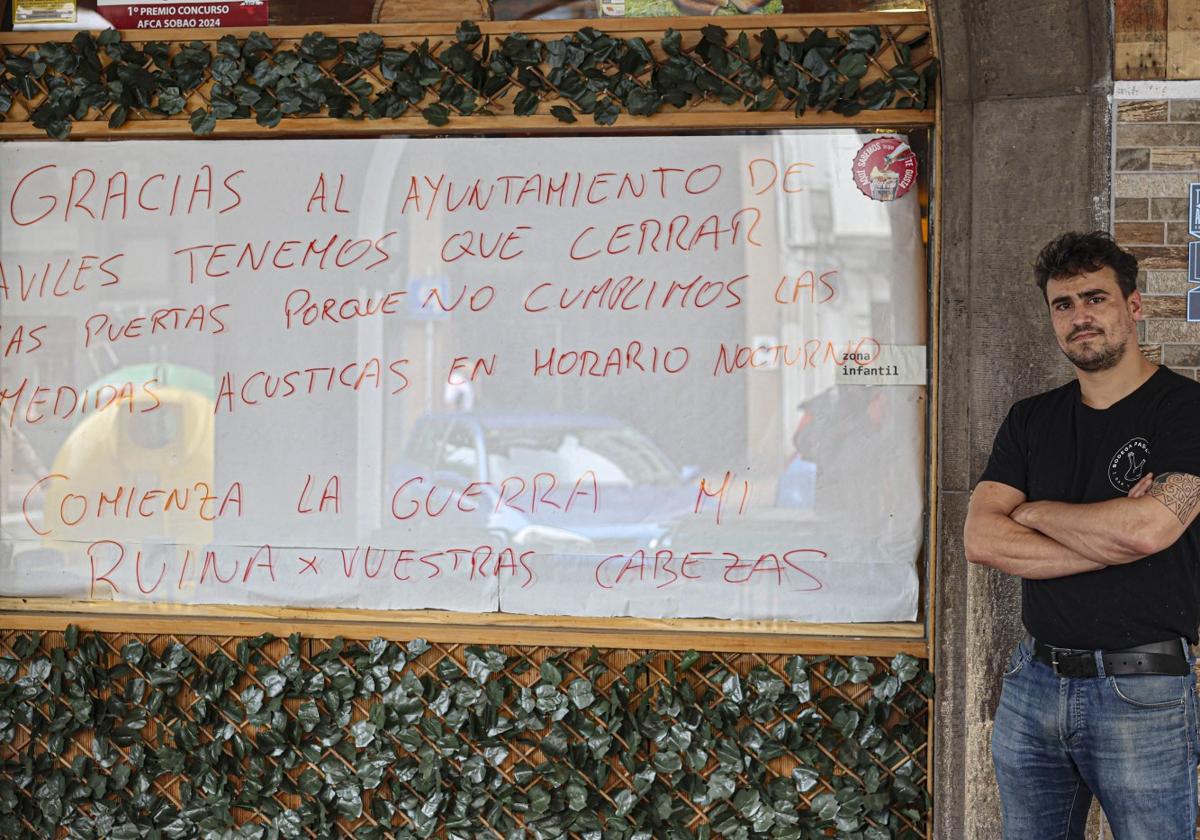 1º PREMIO CONCURSO
AFCA SOBAO 2024
GRACIAS AL AYUNTAMIENTO DE
AVILES TENEMOS QUE CERRAR
LAS PUERTAS PORQUE NO CUMPLIMOS LAS
MEDIDAS ACUSTICAS EN HORARIO NOCTURNO
zona
infantil
COMIENZA LA GUERRA MI
RUINA x VUESTRAS CABEZAS
AQUÍ SABEMOS
TE GUSTA
BODEGA